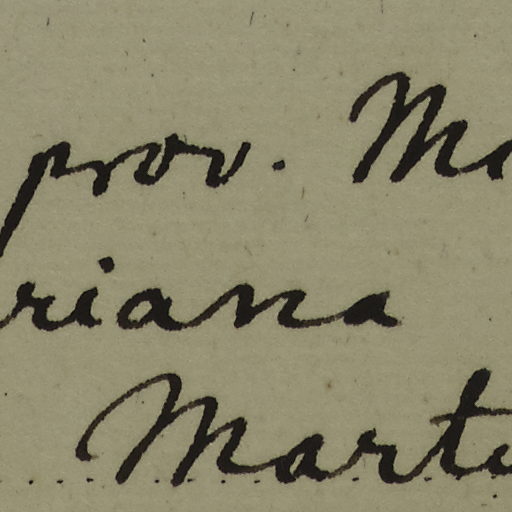 prov. Ma
riana
Mart